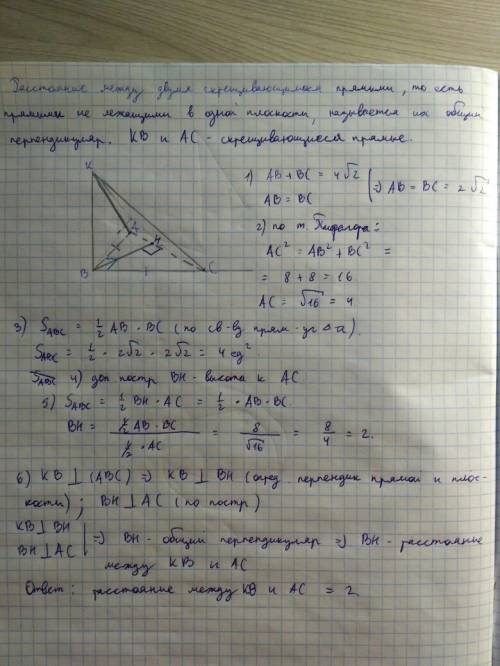 Расстояние между двумя скрещивающимися прямыми, то есть
прямыми не лежащими в одной плоскости, называется их общий
перпендикуляр. KB и AC - скрещивающиеся прямые.
K
A
H
B
C
1) AB + BC = 4√2
AB = BC
⇒ AB = BC = 2√2
2) по т. Пифагора:
AC² = AB² + BC² =
= 8 + 8 = 16
AC = √16 = 4
3) S_ABC = 1/2 AB · BC (по св-ву прям-уг Δ-а).
S_ABC = 1/2 · 2√2 · 2√2 = 4 ед²
S_ABC 4) доп постр BH - высота к AC
5) S_ABC = 1/2 BH · AC = 1/2 · AB · BC
BH = (1/2 AB · BC)/(1/2 · AC) = 8/√16 = 8/4 = 2.
6) KB ⊥ (ABC) ⇒ KB ⊥ BH (опред перпендик прямой и плос-
кости) ; BH ⊥ AC (по постр)
KB ⊥ BH
BH ⊥ AC
⇒ BH - общий перпендикуляр ⇒ BH - расстояние
между KB и AC
Ответ: расстояние между KB и AC = 2